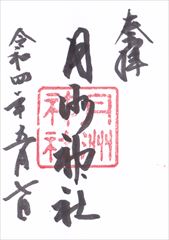 奉拝
月州神社
月州神社
令和四年五月七日